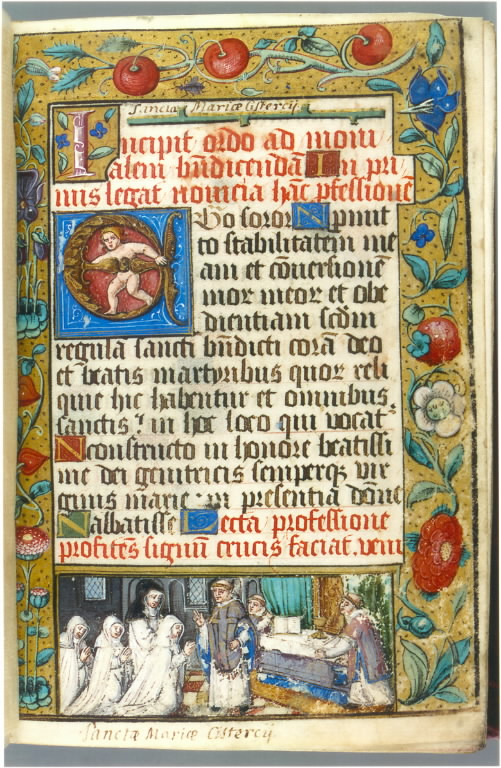 Sanctæ Mariæ Cistercij
Incipit ordo ad moni
alem bñdicendã In pri
mis legat novicia hãc pfessionẽ
Ego soror N pmit
to stabilitatem me
am et cõversionẽ
mor meor et obe
dientiam scdm
regula sancti bñdicti corã deo
et beatis martyribus quor reli
quie hic habentur et omnibus
sanctis in hoc loco qui vocat
N constructo in honore beatissi
me dei genitricis semperq vir
ginis marie in presentia dõne
N abbatisse Lecta professione
profitẽs signũ crucis faciat. veni
Sanctæ Mariæ Cistercij